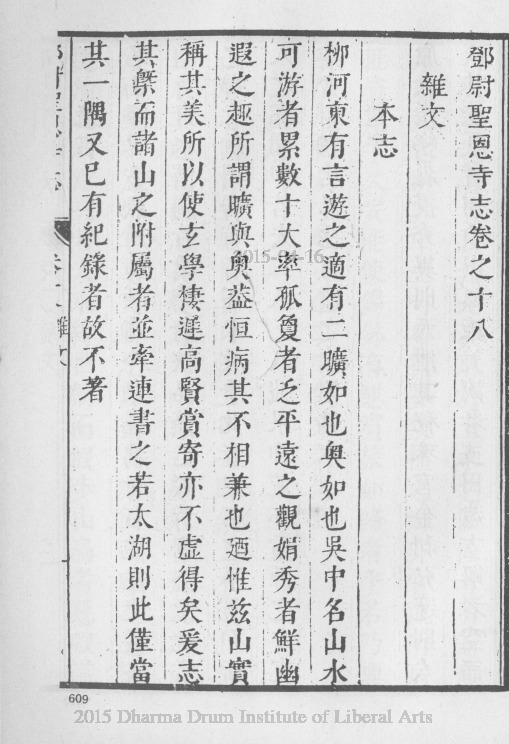 鄧尉聖恩寺志卷之十八
雜文
本志
栁河東有言遊之適有二曠如也奧如也吳中名山水
可游者累數十大率孤敻者乏平遠之觀娟秀者鮮幽
遐之趣所謂曠與奧葢恒病其不相兼也廼惟兹山實
稱其美所以使玄學棲遲高賢賞寄亦不虛得矣爰志
其槩而諸山之附屬者並牽連書之若太湖則此僅當
其一隅又巳有紀錄者故不著
2015-04-16
609
2015 Dharma Drum Institute of Liberal Arts